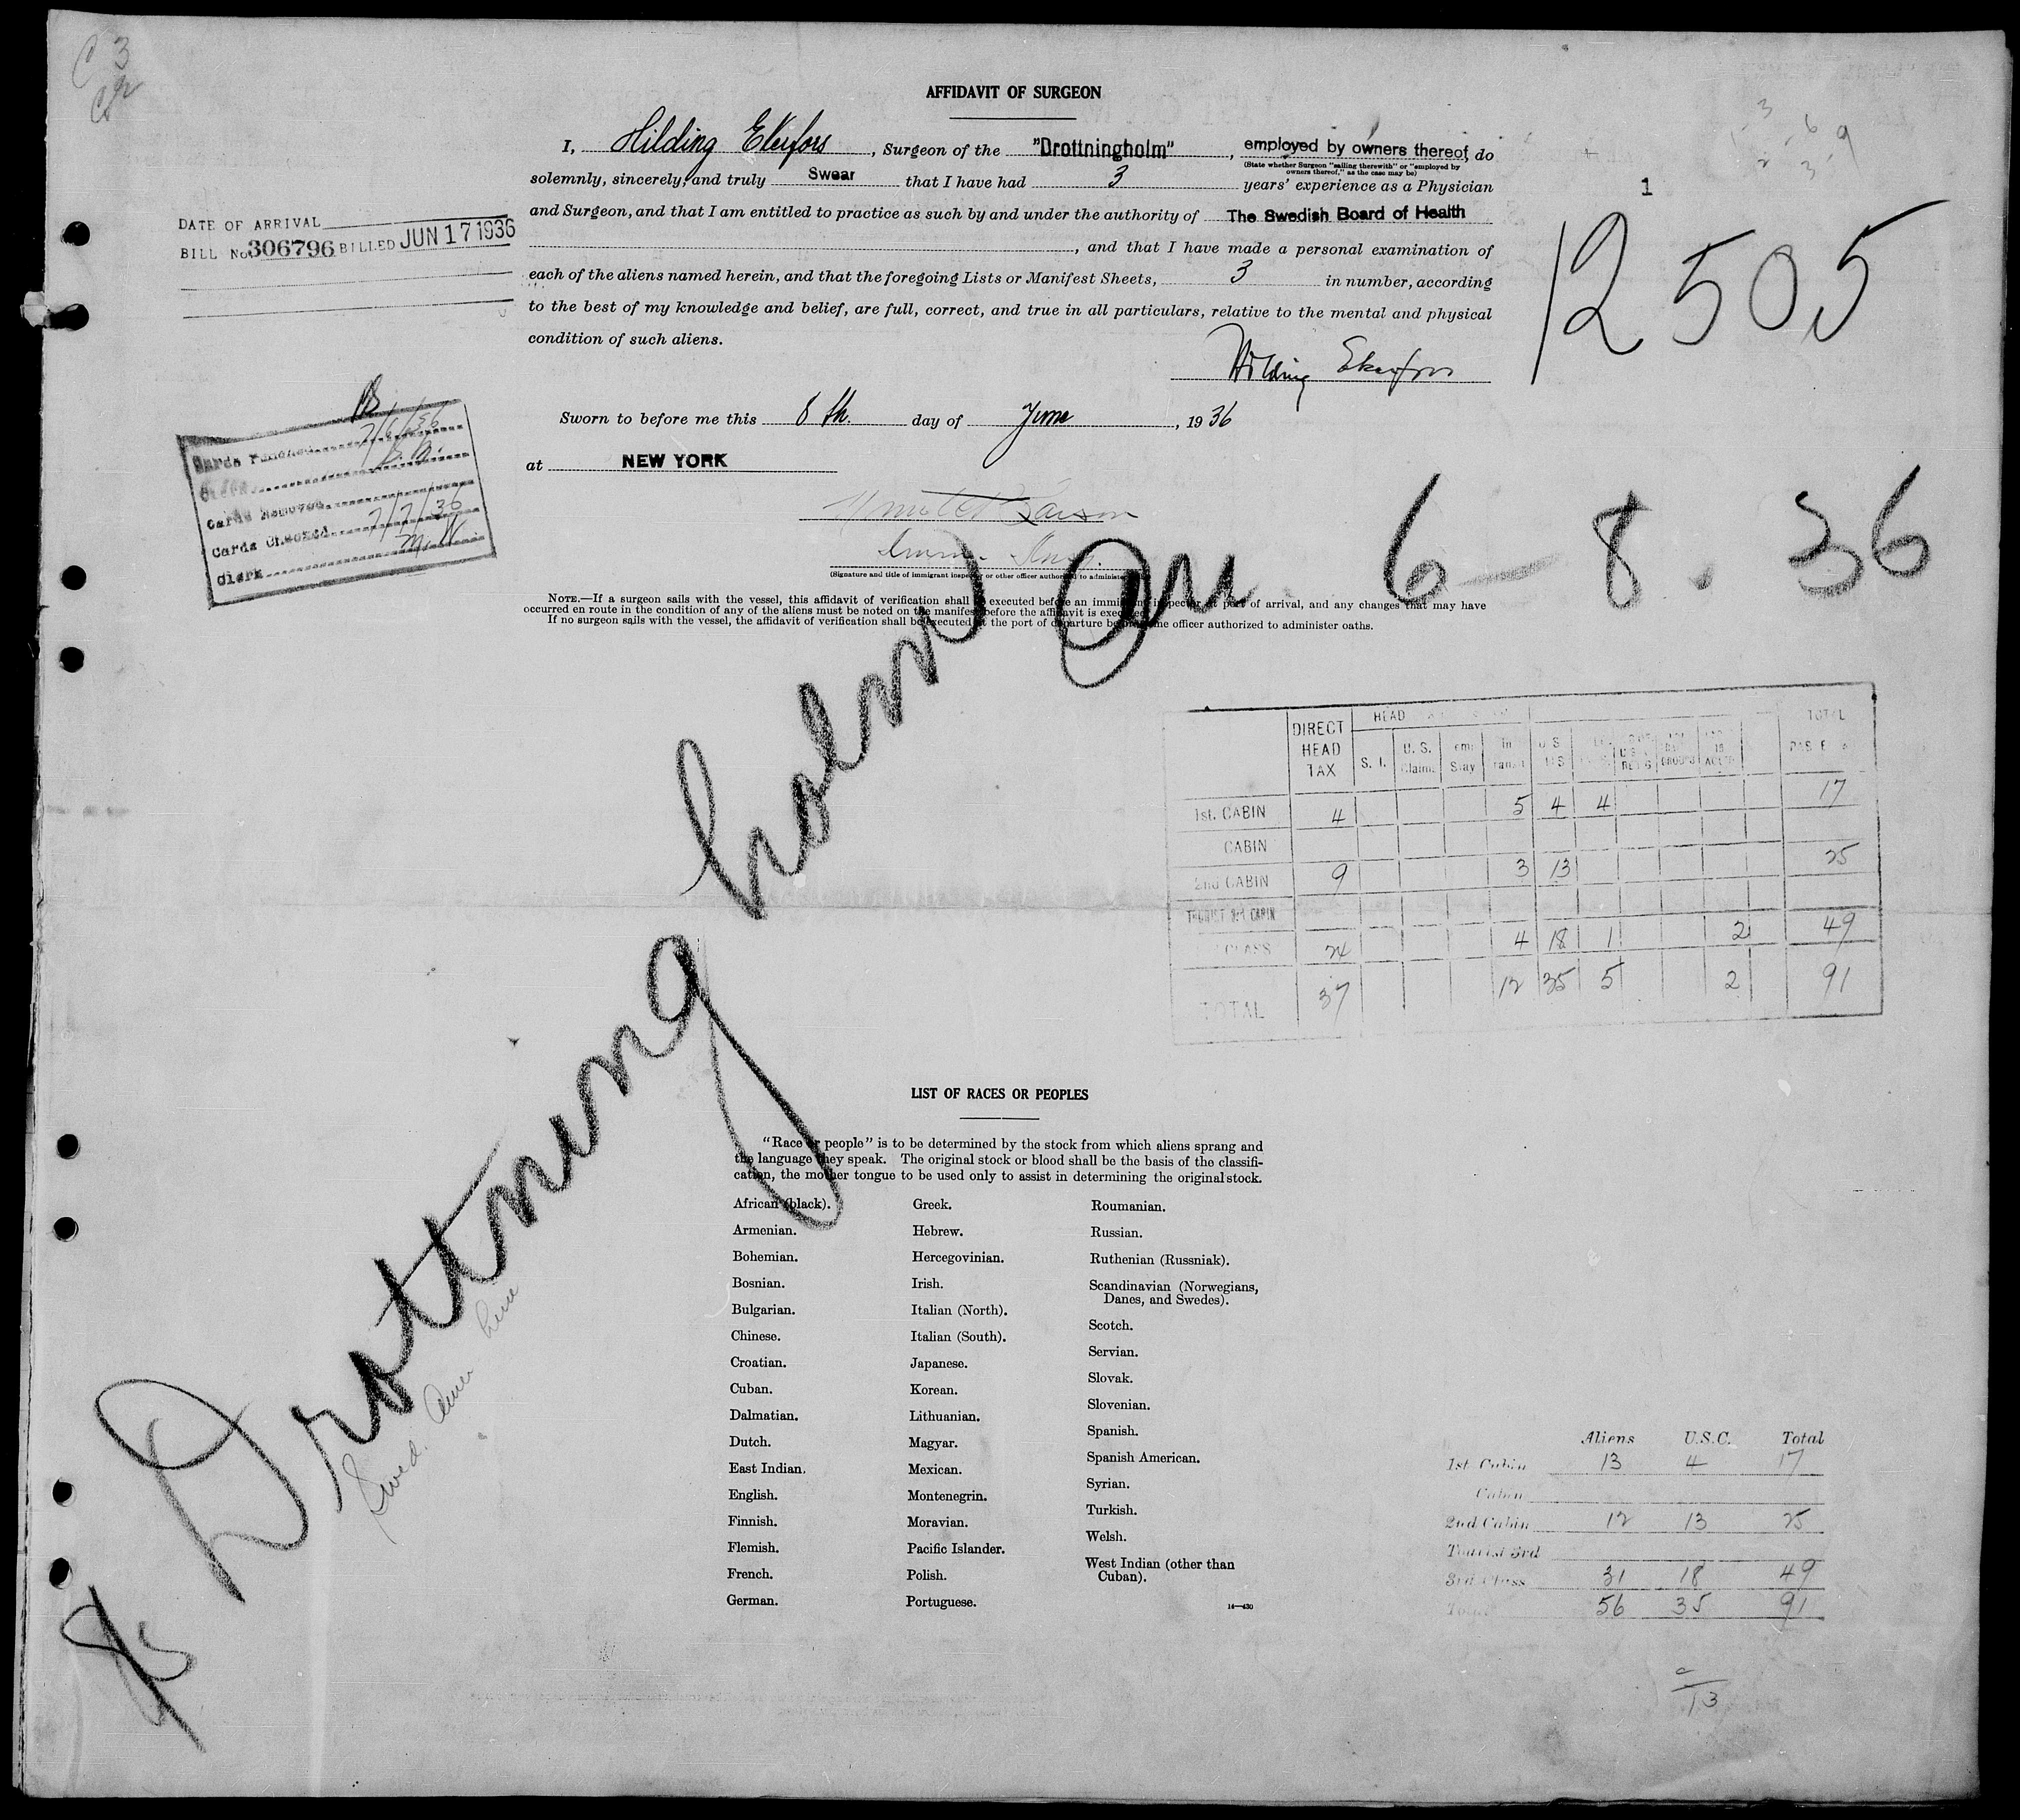 C 3
AFFIDAVIT OF SURGEON
I, Hilding Ekerfors, Surgeon of the "Drottningholm", employed by owners thereof, do
(State whether Surgeon "sailing therewith" or "employed by
owners thereof," as the case may be)
solemnly, sincerely, and truly Swear that I have had 3 years' experience as a Physician
and Surgeon, and that I am entitled to practice as such by and under the authority of The Swedish Board of Health
, and that I have made a personal examination of
each of the aliens named herein, and that the foregoing Lists or Manifest Sheets, 3 in number, according
to the best of my knowledge and belief, are full, correct, and true in all particulars, relative to the mental and physical
condition of such aliens.
Hilding Ekerfors
DATE OF ARRIVAL
BILL No. 306796 BILLED JUN 17 1936
1
12505
Sworn to before me this 8th. day of June, 1936
at NEW YORK
(Signature and title of immigrant inspector or other officer authorized to administer
Cards Punched 7/6/36
Clerk
Cards Removed
Cards Checked 7/7/36
Clerk M.W.
NOTE.—If a surgeon sails with the vessel, this affidavit of verification shall be executed before an immigrant inspector at port of arrival, and any changes that may have
occurred en route in the condition of any of the aliens must be noted on the manifest before the affidavit is executed.
If no surgeon sails with the vessel, the affidavit of verification shall be executed at the port of departure before some officer authorized to administer oaths.
Drottningholm arr. 6-8.36
Swed. Amer Line
DIRECT HEAD TAX HEAD S. I. U. S. Claim Tem. Stay In Transit U S TOTAL
1st. CABIN 4 5 4 4 17
CABIN
2nd CABIN 9 3 13 25
TOURIST 3rd CABIN
CLASS 24 4 18 1 2 49
TOTAL 37 12 35 5 2 91
LIST OF RACES OR PEOPLES
"Race or people" is to be determined by the stock from which aliens sprang and
the language they speak. The original stock or blood shall be the basis of the classifi-
cation, the mother tongue to be used only to assist in determining the original stock.
African (black).
Armenian.
Bohemian.
Bosnian.
Bulgarian.
Chinese.
Croatian.
Cuban.
Dalmatian.
Dutch.
East Indian.
English.
Finnish.
Flemish.
French.
German.
Greek.
Hebrew.
Hercegovinian.
Irish.
Italian (North).
Italian (South).
Japanese.
Korean.
Lithuanian.
Magyar.
Mexican.
Montenegrin.
Moravian.
Pacific Islander.
Polish.
Portuguese.
Roumanian.
Russian.
Ruthenian (Russniak).
Scandinavian (Norwegians,
Danes, and Swedes).
Scotch.
Servian.
Slovak.
Slovenian.
Spanish.
Spanish American.
Syrian.
Turkish.
Welsh.
West Indian (other than
Cuban).
14—430
Aliens U.S.C. Total
1st Cabin 13 4 17
Cabin
2nd Cabin 12 13 25
Tourist 3rd
3rd Class 31 18 49
Total 56 35 91
13